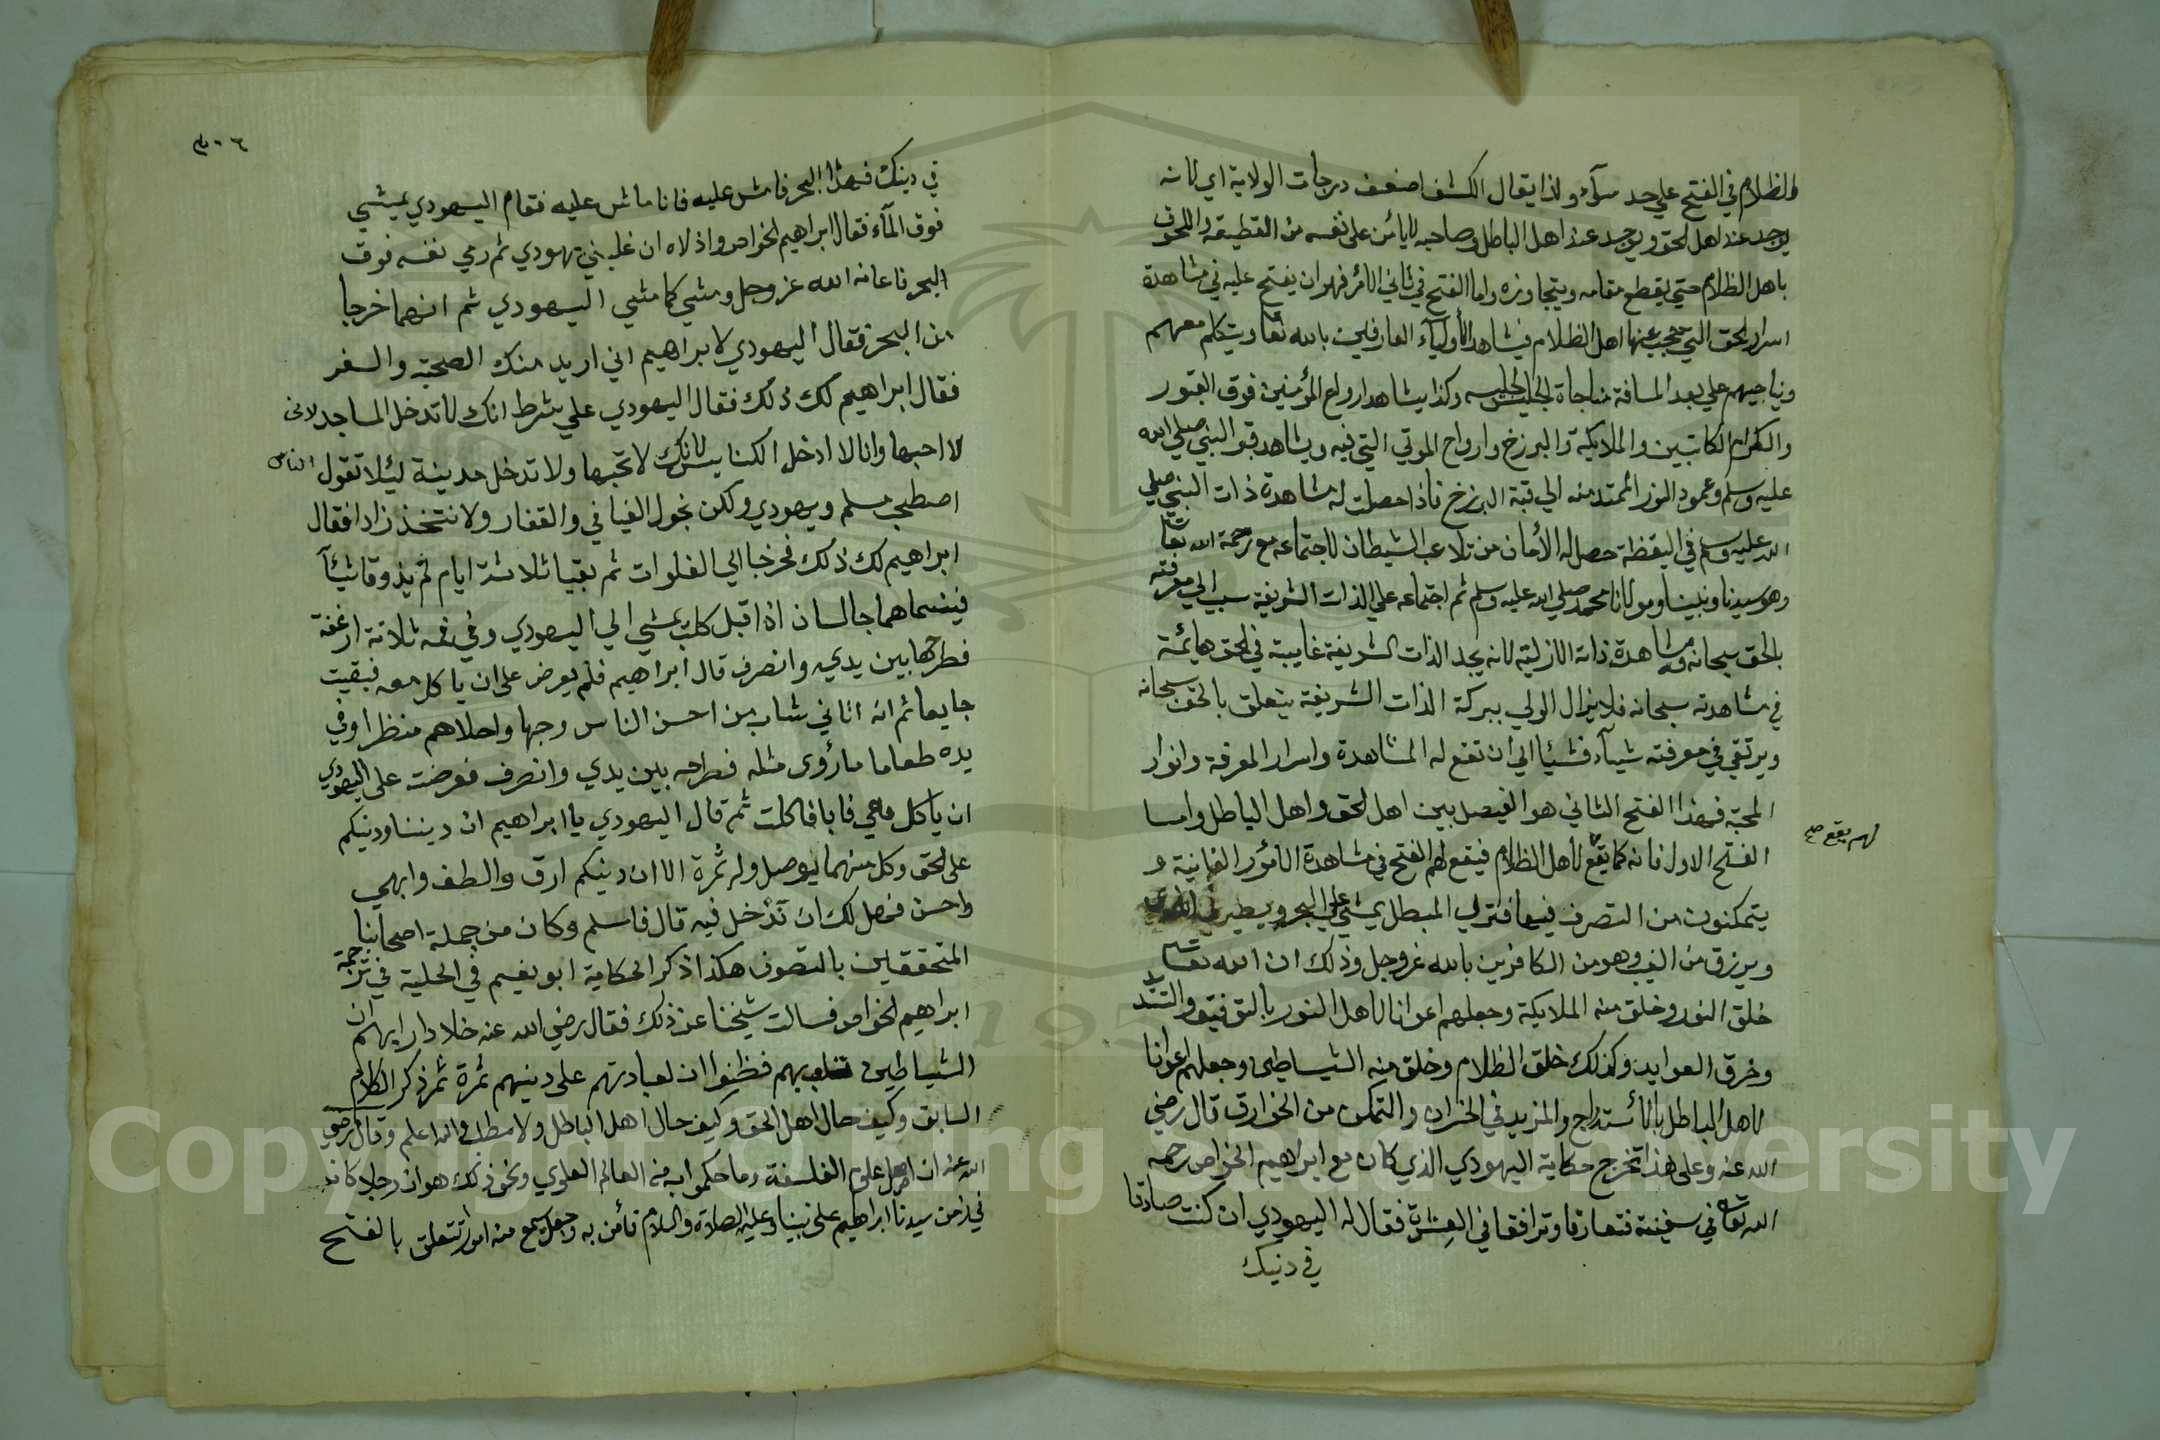 والظلام في الفتح علي حد سوآء ولذا يقال الكشف اضعف درجات الولاية اي لانه
يوجد عند اهل الحق ويوجد عند اهل الباطل وصاحبه لا يأمن علي نفسه من القطيعة واللحوق
باهل الظلام حتي يقطع مقامه ويتجاوزه واما الفتح في ثاني الامر فهو ان يفتح عليه في مشاهدة
اسرار الحق التي حجب عنها اهل الظلام فيشاهد الأوليآء العارفين بالله تعا ويتكلم معهم
ويناجيهم علي بعد المسافة مناجاة الجليس لجليسه وكذا يشاهد ارواح المؤمنين فوق القبور
والكرام الكاتبين والملايكة والبرزخ وارواح الموتي التي فيه ويشاهد قبر النبي صلي الله
عليه وسلم وعمود النور الممتد منه الي قبة البرزخ فاذا حصلت له مشاهدة ذات النبي صلي
الله عليه وسلم في اليقظة حصل له الأمان من تلاعب الشيطان لاجتماعه مع رحمة الله تعا
وهو سيدنا ونبينا ومولانا محمد صلي الله عليه وسلم ثم اجتماعه علي الذات الشريفة سبب الي معرفته
بالحق سبحانه ومشاهدة ذاته الازلية لانه يجد الذات الشريفة غايبة في الحق هايمة
في مشاهدته سبحانه فلا يزال الولي ببركة الذات الشريفة يتعلق بالحق سبحانه
ويرتقي في معرفته شيآء فشيئا الي ان تقع له المشاهدة واسرار المعرفة وانوار
المحبة فهذا الفتح الثاني هو الفيصل بين اهل الحق واهل الباطل واما
الفتح الاول فانه كما يقع لأهل الظلام فيقع لهم الفتح في مشاهدة الأمور الفانية و
لهم يقع صح
يتمكنون من التصرف فيها فتري المبطل يمشي علي البحر ويطير في الهوي
ويرزق من الغيب وهو من الكافرين بالله عز وجل وذلك ان الله تعا
خلق النور وخلق منه الملايكة وجعلهم اعوانا لاهل النور بالتوفيق والتسديد
وخرق العوايد وكذلك خلق الظلام وخلق منه الشياطين وجعلهم اعوانا
لاهل الباطل بالأستدراج والمزيد في الخسران والتمكن من الخوارق قال رضي
الله عنه وعلي هذا تخرج حكاية اليهودي الذي كان مع ابراهيم الخواص رحمه
الله تعا في سفينة فتعارفا وترافقا في العشرة فقال له اليهودي ان كنت صادقا
في دنيك
٣٠٦
في دينك فهذا البحر فامش عليه فانا ماش عليه فقام اليهودي يمشي
فوق المآء فقال ابراهيم الخواص واذلاه ان غلبني يهودي ثم رمي نفسه فوق
البحر فاعانه الله عز وجل ومشي كما مشي اليهودي ثم انهما خرجا
من البحر فقال اليهودي لابراهيم اني اريد منك الصحبة والسفر
فقال ابراهيم لك ذلك فقال اليهودي علي شرط انك لا تدخل المساجد لاني
لا احبها وانا لا ادخل الكنايس لانك لا تحبها ولا تدخل مدينة ليئلا تقول الناس
اصطحب مسلم ويهودي ولكن نجول الفيافي والقفار ولا نتخذ زادا فقال
ابراهيم لك ذلك فخرجا الي الفلوات ثم بقيا ثلاثة ايام لم يذوقا شيئآ
فبينما هما جالسان اذ اقبل كلب يمشي الي اليهودي وفي فمه ثلاثة ارغفة
فطرحها بين يديه وانصرف قال ابراهيم فلم يعرض علي ان ياكل معه فبقيت
جايعا ثم انه اتاني شاب من احسن الناس وجها واحلاهم منظرا وفي
يده طعاما ما رؤى مثله فطرحه بين يدي وانصرف فعرضت علي اليهودي
ان ياكل معي فابا فاكلت ثم قال اليهودي يا ابراهيم ان ديننا ودينكم
علي الحق وكل منهما يوصل وله ثمرة الا ان دينكم ارق والطف وابهي
واحسن فهل لك ان تدخل فيه قال فاسلم وكان من جملة اصحابنا
المتحققين بالتصوف هكذا ذكر الحكاية ابو نعيم في الحلية في ترجمة
ابراهيم الخواص فسالت شيخنا عن ذلك فقال رضي الله عنه خلا دار ابهم ان
الشياطين تلعب بهم فظنوا ان لعبادتهم علي دينهم ثمرة ثم ذكر الكلام
السابق وكيف حال اهل الحق وكيف حال اهل الباطل ولا مطلب والله اعلم وقال رضي
الله عنه ان اصل علوم الفلسفة وما حكموا به في العالم العلوي ونحو ذلك هو ان رجلا كان
في زمن سيدنا ابراهيم علي نبينا وعليه الصلاة والسلام فأمن به وجعل يسمع منه امورا تتعلق بالفتح